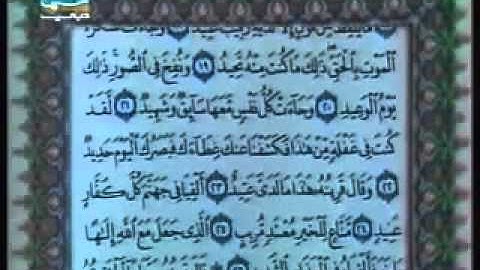 ٱلْمَوْتِ بِٱلْحَقِّ ذَٰلِكَ مَا كُنتَ مِنْهُ تَحِيدُ ١٩ وَنُفِخَ فِى ٱلصُّورِ ۚ ذَٰلِكَ
يَوْمُ ٱلْوَعِيدِ ٢٠ وَجَآءَتْ كُلُّ نَفْسٍ مَّعَهَا سَآئِقٌ وَشَهِيدٌ ٢١ لَّقَدْ
كُنتَ فِى غَفْلَةٍ مِّنْ هَٰذَا فَكَشَفْنَا عَنكَ غِطَآءَكَ فَبَصَرُكَ ٱلْيَوْمَ حَدِيدٌ
٢٢ وَقَالَ قَرِينُهُۥ هَٰذَا مَا لَدَىَّ عَتِيدٌ ٢٣ أَلْقِيَا فِى جَهَنَّمَ كُلَّ كَفَّارٍ
عَنِيدٍ ٢٤ مَّنَّاعٍ لِّلْخَيْرِ مُعْتَدٍ مُّرِيبٍ ٢٥ ٱلَّذِى جَعَلَ مَعَ ٱللَّهِ إِلَٰهًا